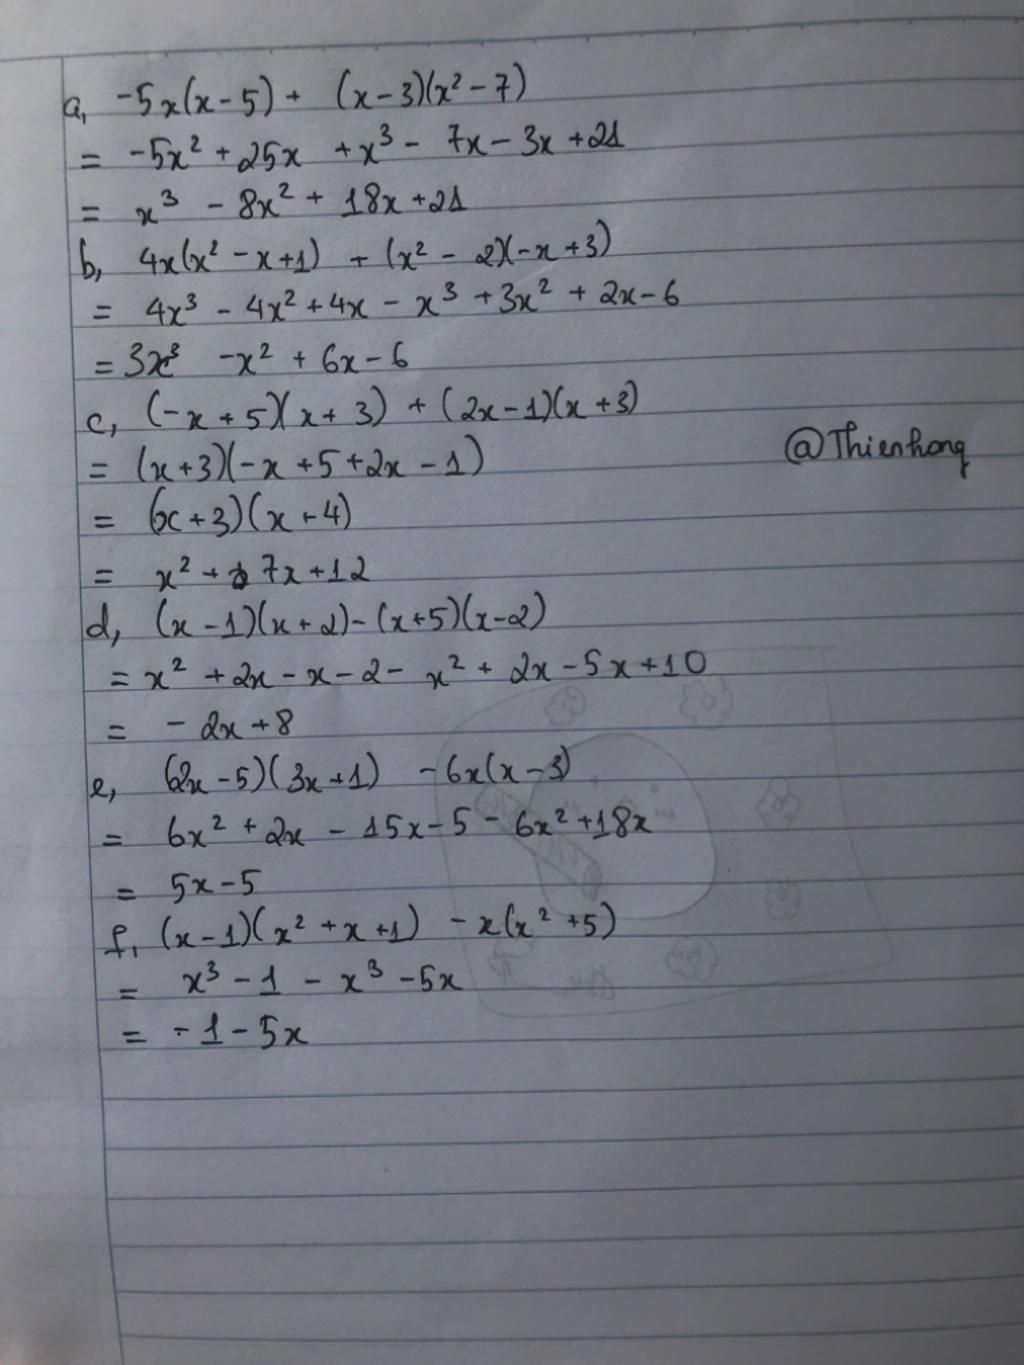 a, -5x(x-5) + (x-3)(x² - 7)
= -5x² + 25x + x³ - 7x - 3x + 21
= x³ - 8x² + 18x + 21
b, 4x(x² - x + 1) + (x² - 2)(-x + 3)
= 4x³ - 4x² + 4x - x³ + 3x² + 2x - 6
= 3x³ - x² + 6x - 6
c, (-x + 5)(x + 3) + (2x - 1)(x + 3)
= (x + 3)(-x + 5 + 2x - 1)
@Thienhong
= (x + 3)(x + 4)
= x² + 7x + 12
d, (x - 1)(x + 2) - (x + 5)(x - 2)
= x² + 2x - x - 2 - x² + 2x - 5x + 10
= - 2x + 8
e, (2x - 5)(3x + 1) - 6x(x - 3)
= 6x² + 2x - 15x - 5 - 6x² + 18x
= 5x - 5
f, (x - 1)(x² + x + 1) - x(x² + 5)
= x³ - 1 - x³ - 5x
= - 1 - 5x